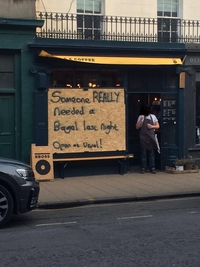 & COFFEE
Someone REALLY
Needed a
Bagel last night
Open as Usual!